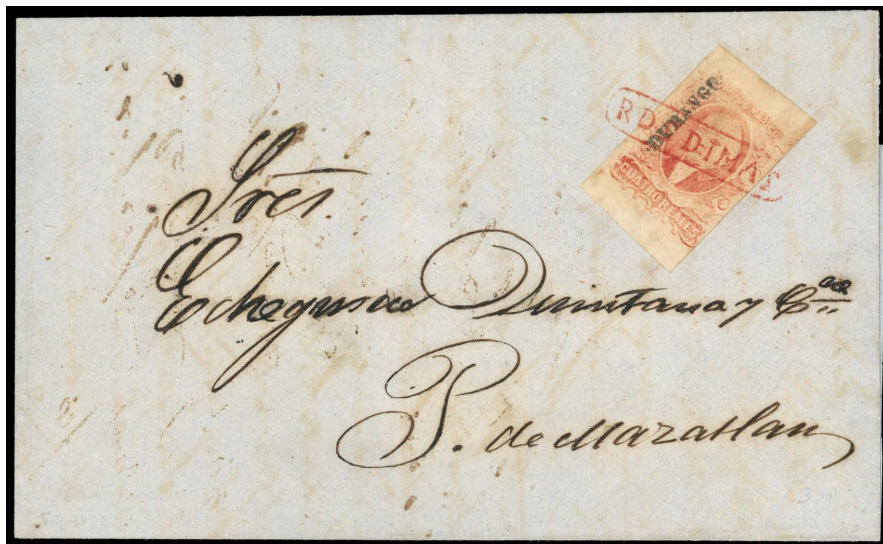 DURANGO
R D
DIMAS
CUATRO REALES
Sres.
Echeguren Quintana y Cia
P. de Mazatlan